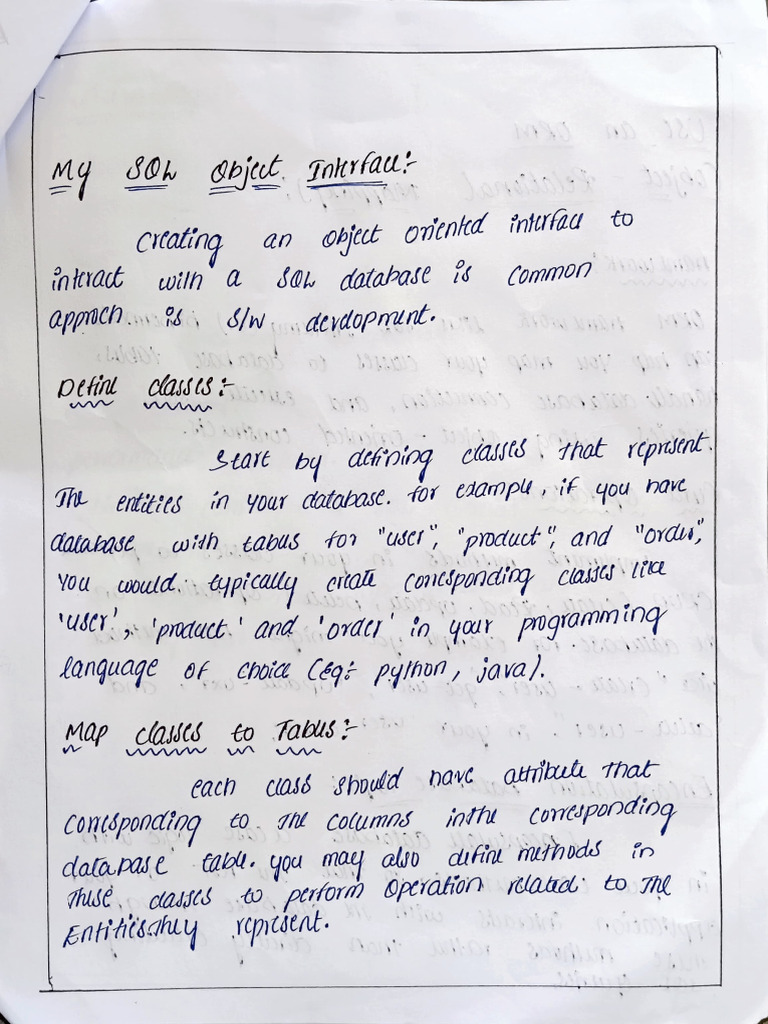 My SQL Object Interface:-
Creating an object oriented interface to
interact with a SQL database is common
approch is S/W devdopment.
Define classes:-
Start by defining classes that represent
The entities in your database. for example, if you have
database with tables for "user", "product", and "order",
You would typically create corresponding classes like
'user', 'product' and 'order' in your programming
language of choice (eg:- python, java).
Map classes to Tables:-
each class should have attribute that
corresponding to the columns in the corresponding
database table. you may also define methods in
These classes to perform operation related to The
Entities They represent.